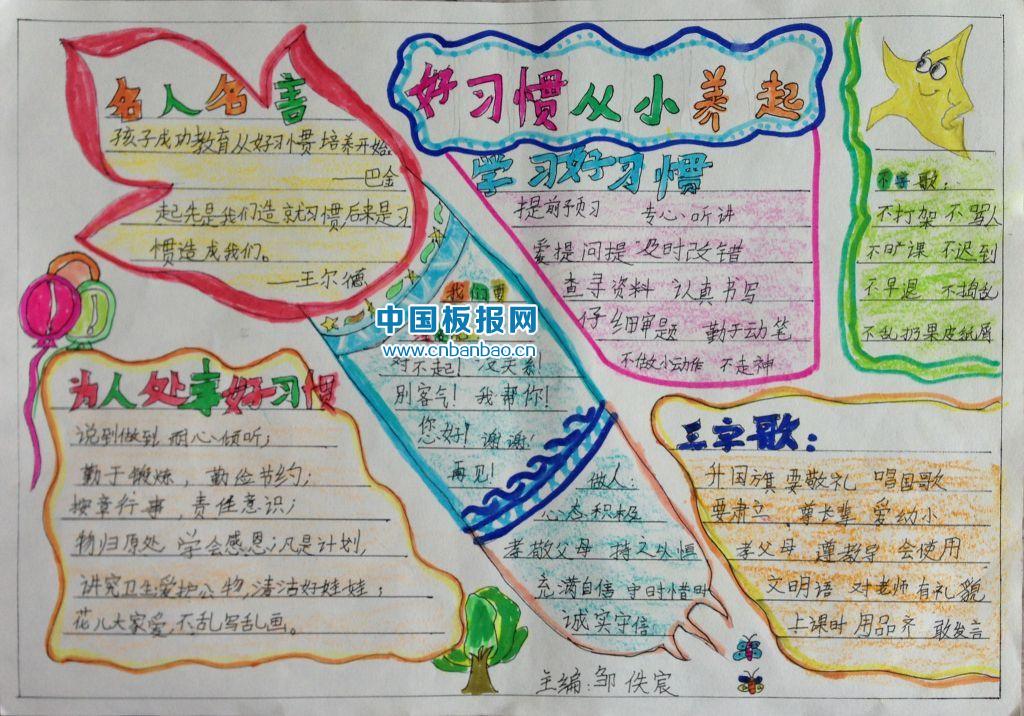 好习惯从小养起
名人名言
孩子成功教育从好习惯培养开始
——巴金
起先是我们造就习惯后来是习
惯造成我们。
——王尔德
学习好习惯
提前预习 专心听讲
爱提问提 及时改错
查寻资料 认真书写
仔细审题 勤于动笔
不做小动作 不走神
不字歌:
不打架 不骂人
不旷课 不迟到
不早退 不捣乱
不乱扔果皮纸屑
我们要
中国板报网
www.cnbanbao.cn
对不起! 没关系!
别客气! 我帮你!
您好! 谢谢!
再见!
做人:
心态积极
孝敬父母 持之以惧
充满自信 守时惜时
诚实守信
为人处事好习惯
说到做到 耐心倾听;
勤于锻炼, 勤俭节约;
按章行事, 责任意识;
物归原处 学会感恩;凡是计划,
讲究卫生爱护公物,清洁好娃娃;
花儿大家爱,不乱写乱画。
三字歌:
升国旗 要敬礼 唱国歌
要肃立 尊长辈 爱幼小
孝父母 遵教导 会使用
文明语 对老师 有礼貌
上课时 用品齐 敢发言
主编:邹佚宸